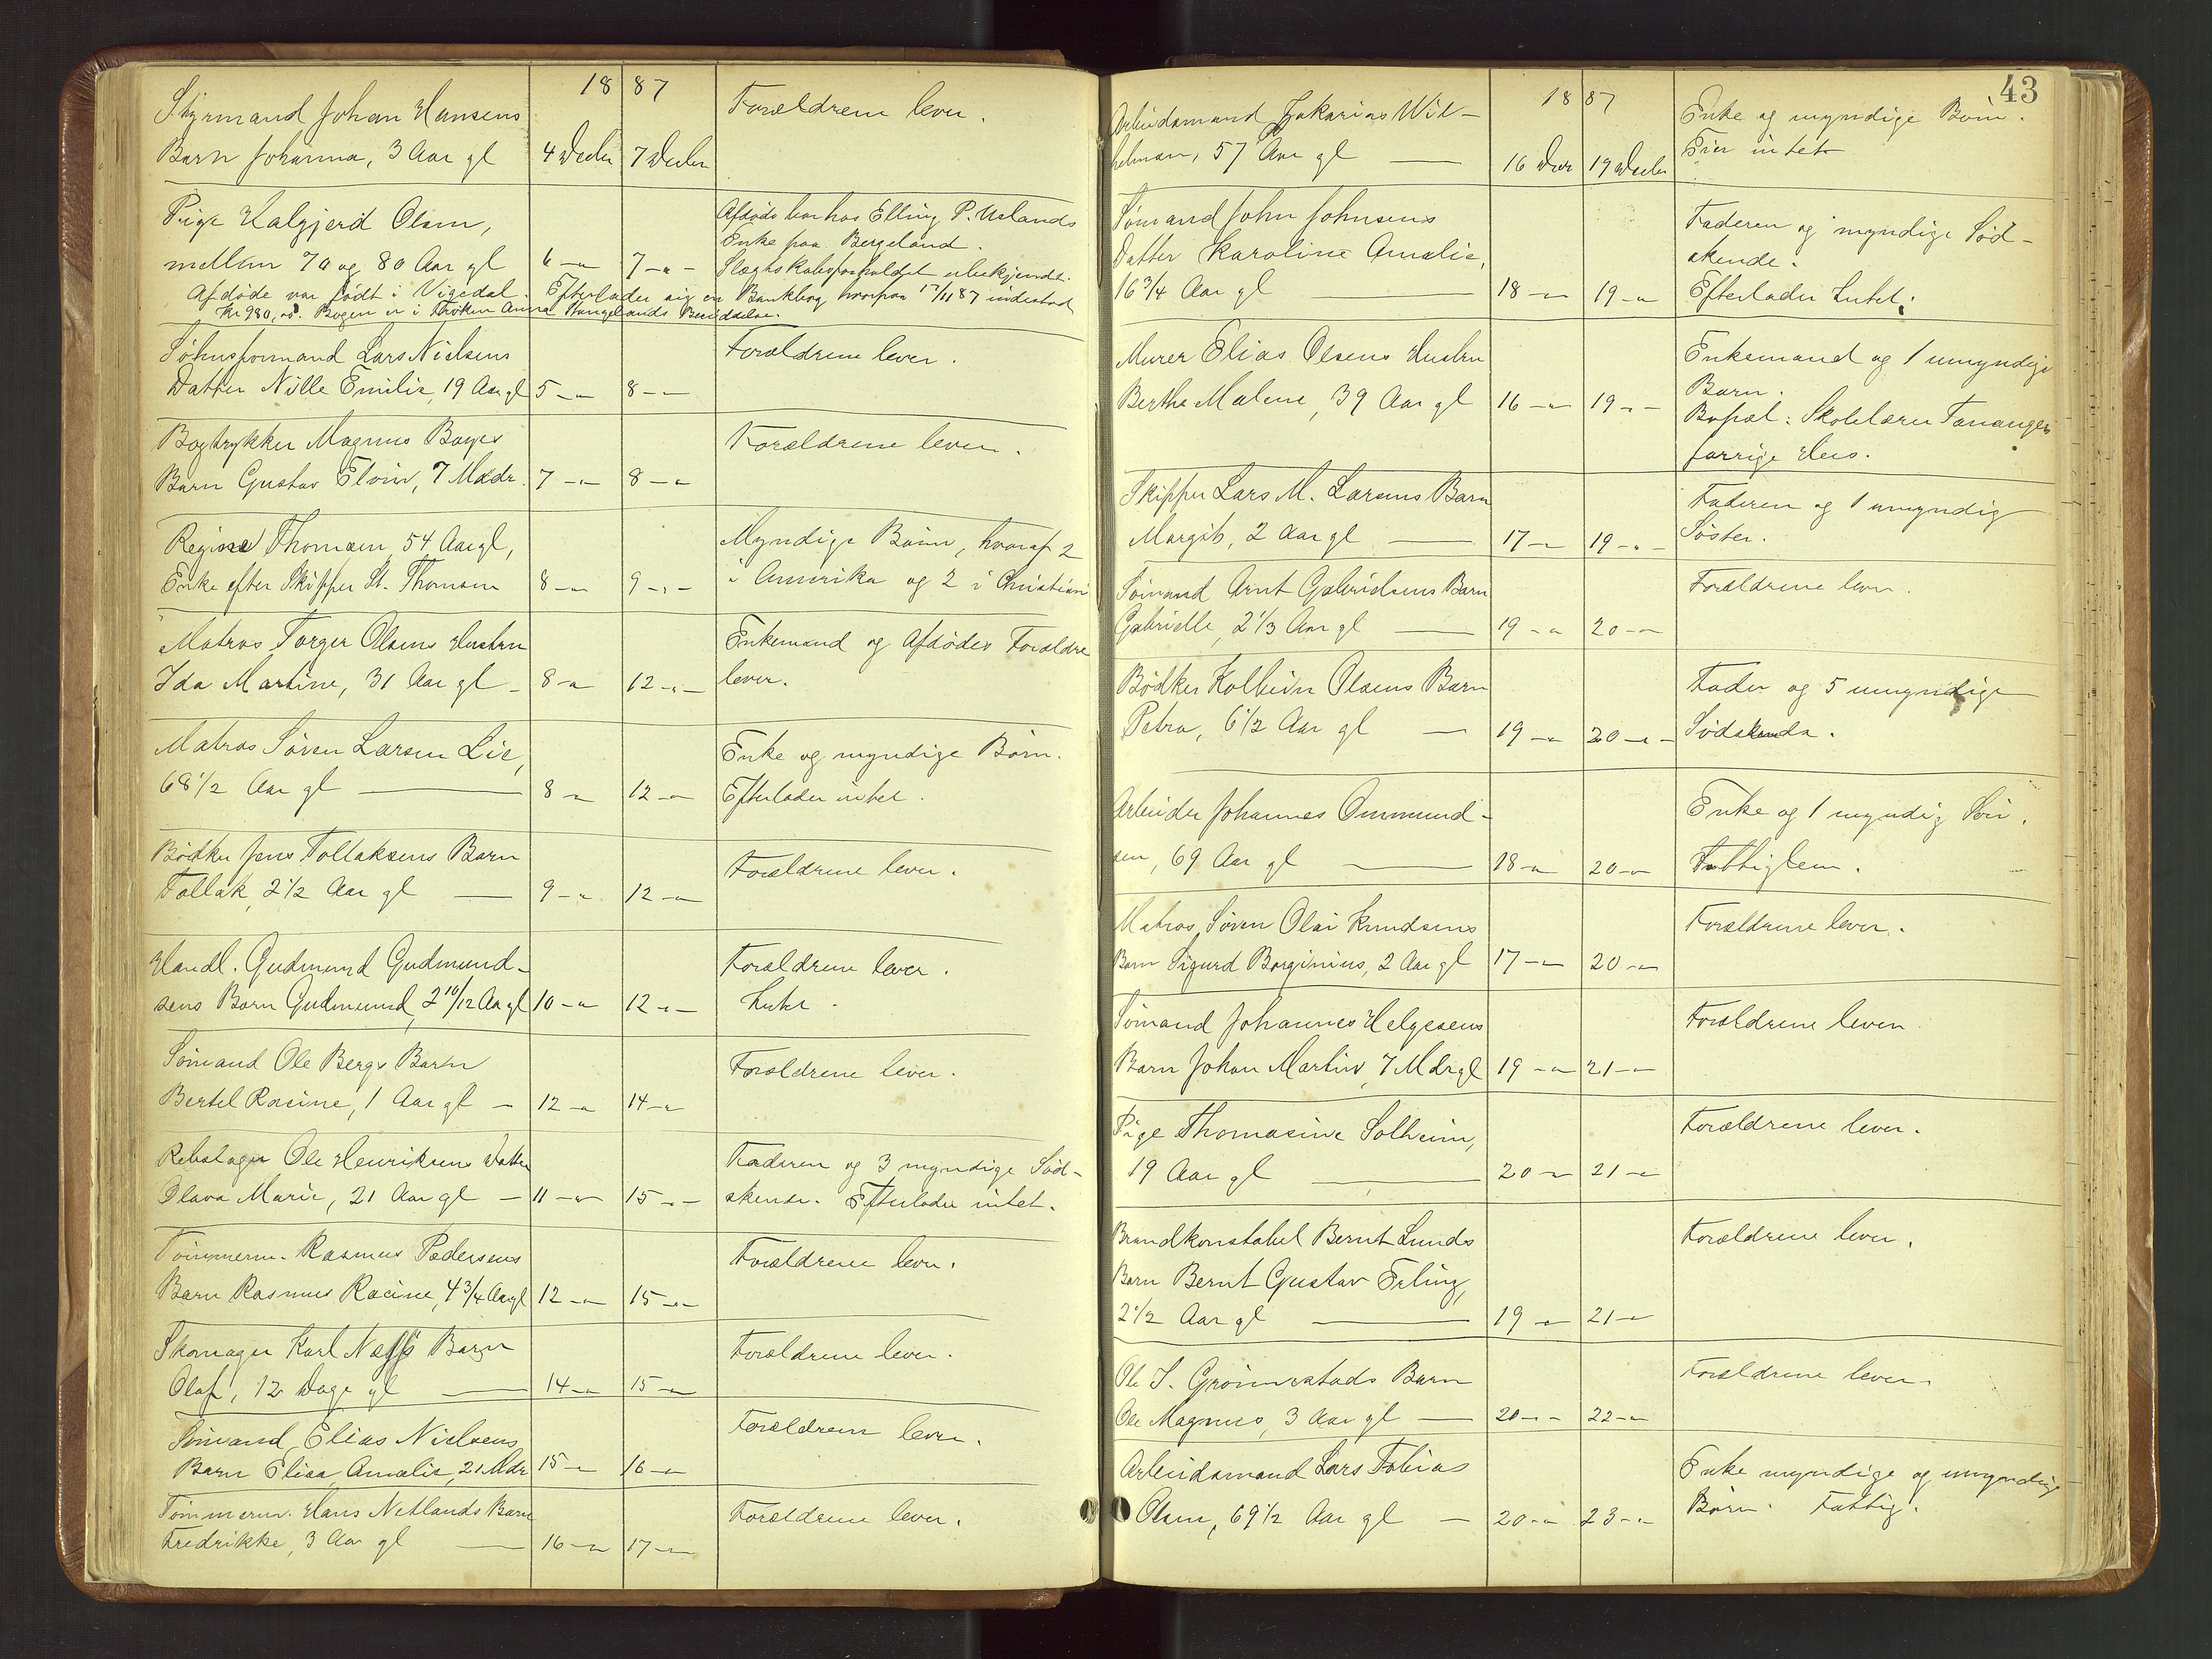 18 87
Styrmand Johan Hansens
Barn Johanna, 3 Aar gl 4 Decbr 7 Decbr
Forældrene lever.
Pige Halgjerd Olsen,
mellem 70 og 80 Aar gl 6 -"- 7 -"-
Afdøde var hos Elling P. Uelands
Enke paa Bergeland.
Slægtskabsforholdet ubekjendt.
Afdøde var født i Vigedal. Efterlader sig en Bankbog hvorpaa 17/11 87 indestod
Kr 980,00. Bogen er i Frøken Anna Stangelands Besiddelse.
Lars Nielsens
Datter Nille Emilie, 19 Aar gl 5 -"- 8 -"-
Forældrene lever.
Bogtrykker Magnus Bayes
Barn Gustav Elvin, 7 Mdr. 7 -"- 8 -"-
Forældrene lever.
Regine Thomsen, 54 Aar gl,
Enke efter Skipper St. Thomsen 8 -"- 9 -"-
Myndige Børn, hvoraf 2
i Amerika og 2 i Christiani
Matros Torger Olsens Hustru
Ida Martine, 31 Aar gl - 8 -"- 12 -"-
Enkemand og Afdødes Forældre
lever.
Matros Søren Larsen Lie,
68 1/2 Aar gl 8 -"- 12 -"-
Enke og myndige Børn.
Efterlader intet.
Bødker Jens Tollaksens Barn
Tollak, 2 1/2 Aar gl 9 -"- 12 -"-
Forældrene lever.
Handl. Gudmund Gudmund-
sens Barn Gudmund, 2 10/12 Aar gl 10 -"- 12 -"-
Forældrene lever.
Sømand Ole Bergs Barn
Bertel Racine, 1 Aar gl - 12 -"- 14 -"-
Forældrene lever.
Rebslager Ole Henriksens Datter
Olava Marie, 21 Aar gl - 11 -"- 15 -"-
Faderen og 3 myndige Sød-
skende. Efterlader intet.
Tømmerm. Rasmus Pedersens
Barn Rasmus Racine, 4 3/4 Aar gl 12 -"- 15 -"-
Forældrene lever.
Skomager Karl Næss Barn
Olaf, 12 Dage gl 14 -"- 15 -"-
Forældrene lever.
Sømand Elias Nielsens
Barn Elisa Amalie, 21 Mdr 15 -"- 16 -"-
Forældrene lever.
Tømmerm. Hans Netlands Barn
Fredrikke, 3 Aar gl 16 -"- 17 -"-
Forældrene lever.
43
18 87
Arbeidsmand Zakarias Wil-
helmsen, 57 Aar gl 16 Decbr 19 Decbr
Enke og myndige Børn.
Eier intet
Sømand John Johnsens
Datter Karoline Amalie,
16 3/4 Aar gl 18 -"- 19 -"-
Faderen og myndige Sød-
skende.
Efterlader Intet.
Murer Elias Olsens Hustru
Berthe Malene, 39 Aar gl 16 -"- 19 -"-
Enkemand og 1 umyndige
Barn.
Bopæl: Skolelærer Tananger
forrige Hus.
Skipper Lars M. Larsens Barn
Margit, 2 Aar gl 17 -"- 19 -"-
Faderen og 1 umyndig
Søster.
Sømand Arnt Gabrielsens Barn
Gabrielle, 2 1/3 Aar gl 19 -"- 20 -"-
Forældrene lever.
Bødker Kolbein Olsens Barn
Petra, 6 1/2 Aar gl 19 -"- 20 -"-
Fader og 5 umyndige
Sødskende.
Arbeider Johannes Ommund-
sen, 69 Aar gl 18 -"- 20 -"-
Enke og 1 myndig Søn.
Fattiglem.
Matros Søren Olai Knudsens
Barn Sigurd Borginius, 2 Aar gl 17 -"- 20 -"-
Forældrene lever.
Sømand Johannes Helgesens
Barn Johan Martin, 7 Mdr gl 19 -"- 21 -"-
Forældrene lever
Pige Thomasine Solheim,
19 Aar gl 20 -"- 21 -"-
Forældrene lever.
Brandkonstabel Bernt Lunds
Barn Bernt Gustav Erling,
2 1/2 Aar gl 19 -"- 21 -"-
Forældrene lever.
Ole S. Grønnestads Barn
Ole Magnus, 3 Aar gl 20 -"- 22 -"-
Forældrene lever.
Arbeidsmand Lars Tobias
Olsen, 69 1/2 Aar gl - 20 -"- 23 -"-
Enke myndige og umyndige
Børn. Fattig.